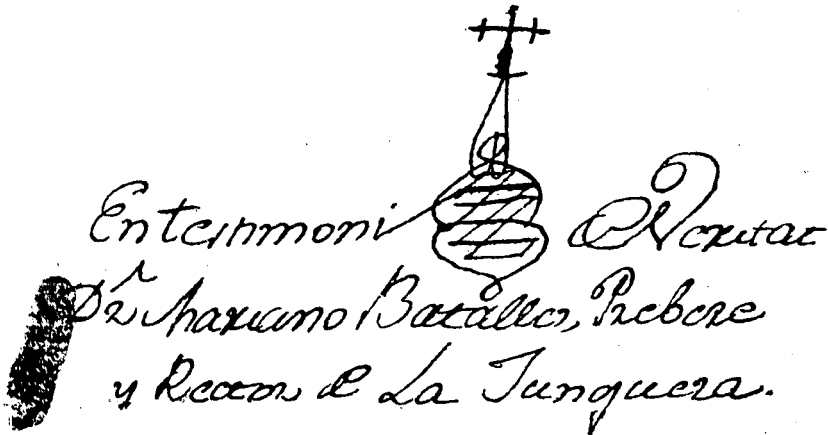 En testimoni de Veritat
Dr. Mariano Bataller, Prebere
y Rector de La Junquera.